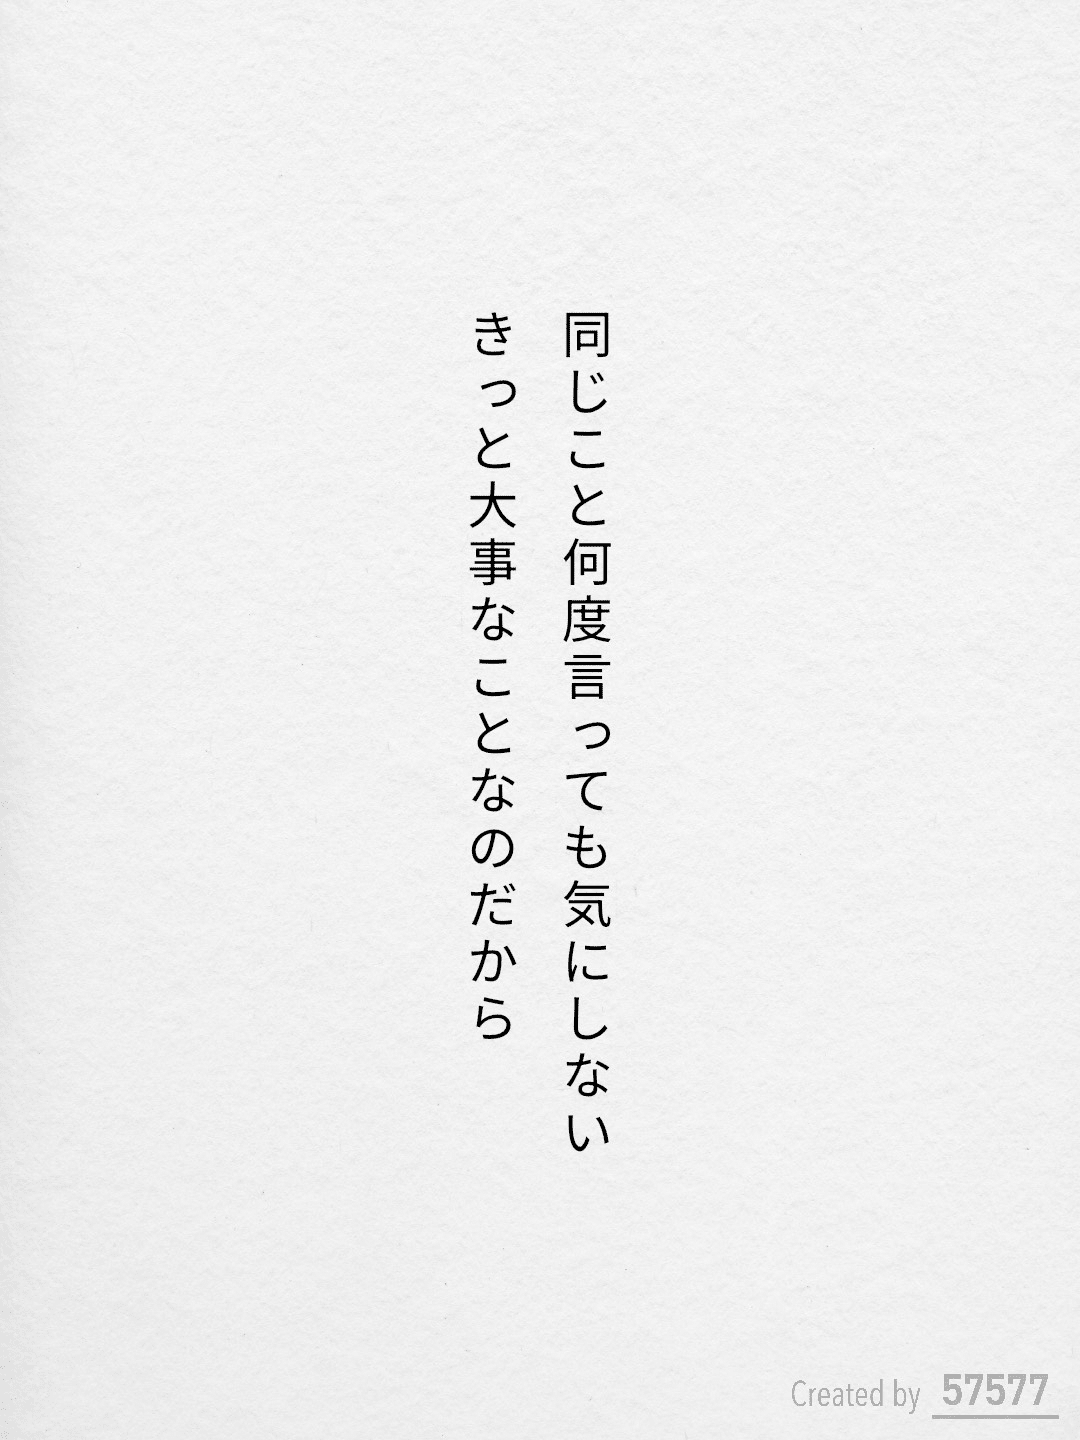 同じこと何度言っても気にしない
きっと大事なことなのだから
Created by 57577